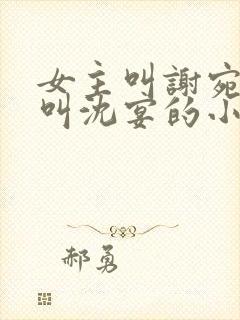 女主叫謝宛
叫沈宴的小
郝勇